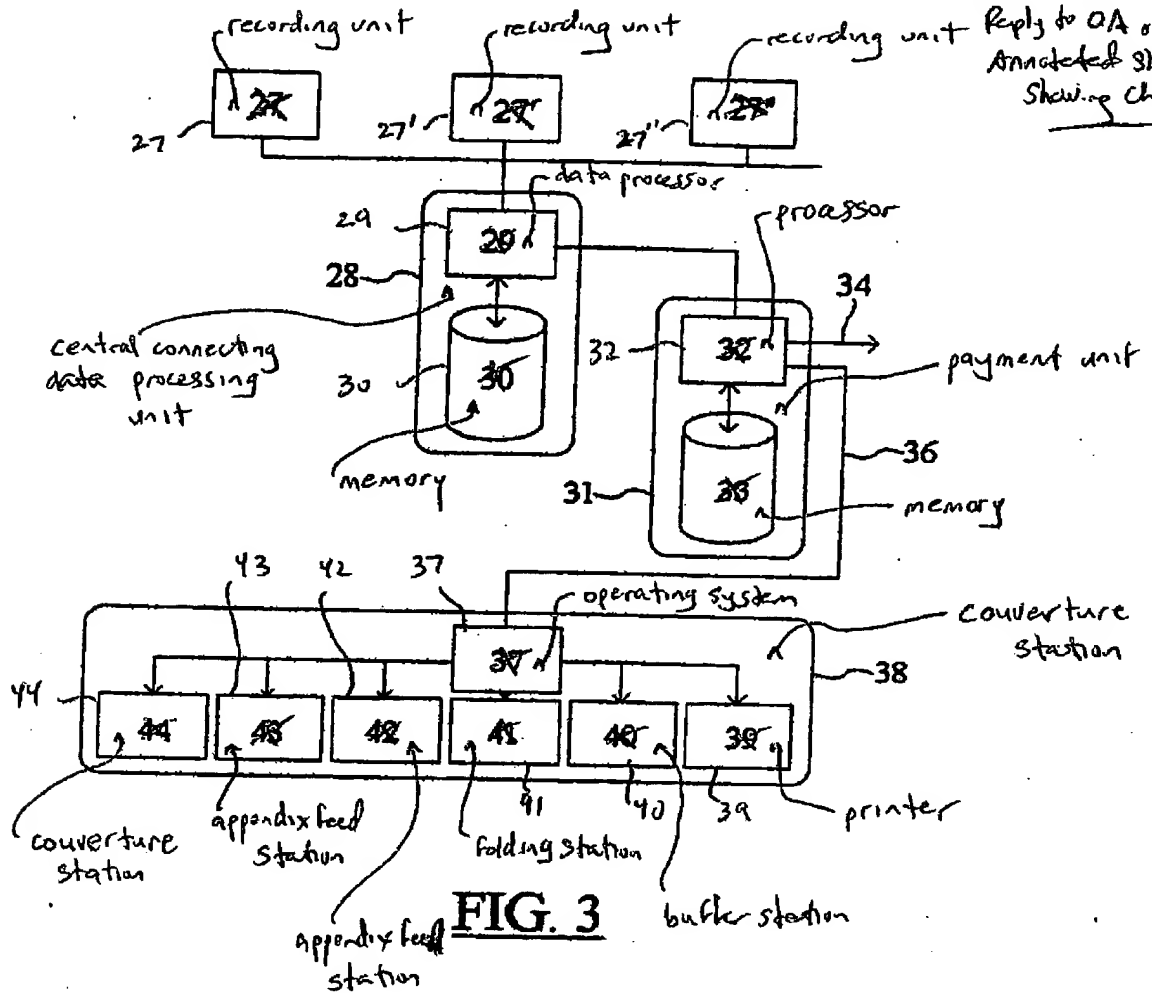 recording unit
recording unit
recording unit
Reply to OA
Annotated
Showing
27
27
27'
27'
27"
27"
data processor
processor
29
29
28
34
central connecting
data processing
unit
32
32
payment unit
30
30
36
memory
31
33
memory
43
42
37
operating system
couverture
station
37
38
44
44
43
42
41
40
39
41
40
39
printer
couverture
station
appendix feed
station
folding station
buffer station
FIG. 3
appendix feed
station